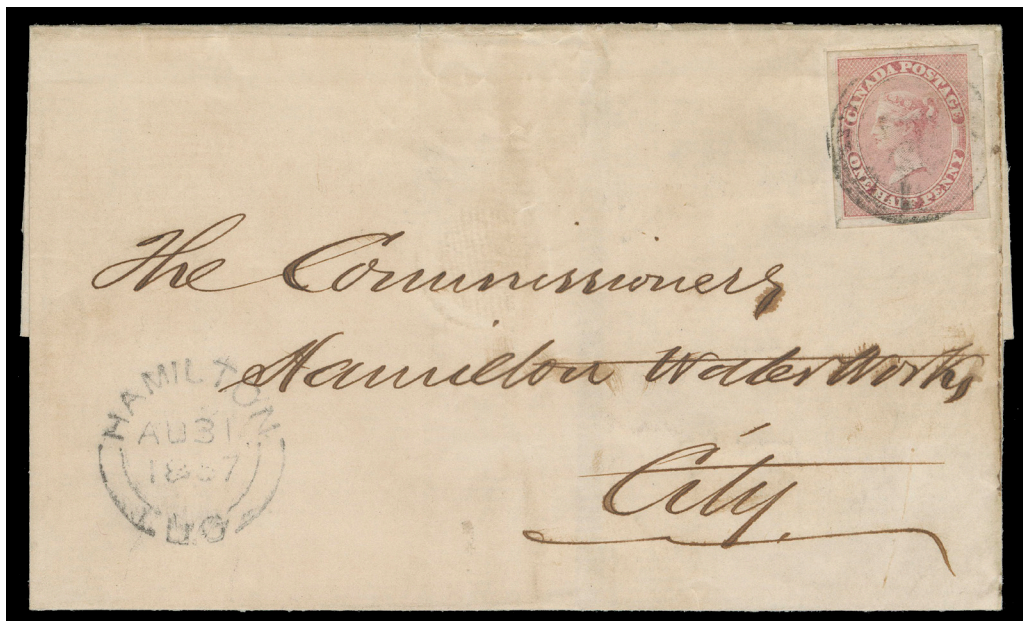 CANADA POSTAGE
ONE HALF PENNY
The Commissioners,
Hamilton Water Works,
City.
HAMILTON
AU 31
1857